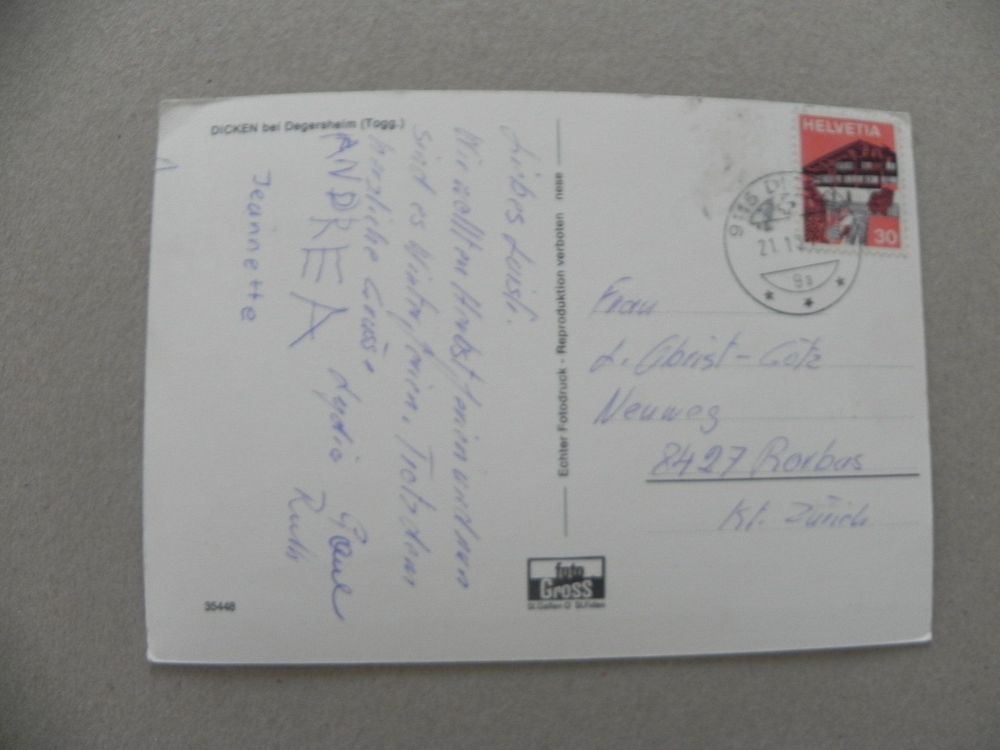 DICKEN bei Degersheim (Togg.)
Liebes Luisli.
Wir wollten Herbstferien und nun
sind es Winterferien. Trotzdem
herzliche Grüsse
ANDREA Lydia Paul
Jeannette Ruth
35448
Echter Fotodruck - Reproduktion verboten nese
foto
Gross
St.Gallen O St.Fiden
HELVETIA
30
9115
21.1
9a
Frau
L. Obrist-Götz
Neuweg
8427 Rorbas
Kt. Zürich